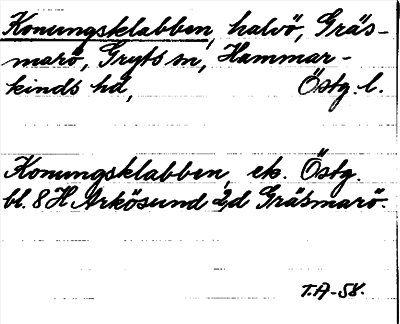 Konungsklabben, halvö, Gräs-
marö, Gryts sn, Hammar-
kinds hd, Östg. l.
Konungsklabben, ek. Östg.
bl. 8 H Arkösund 2d Gräsmarö.
T.A-58.